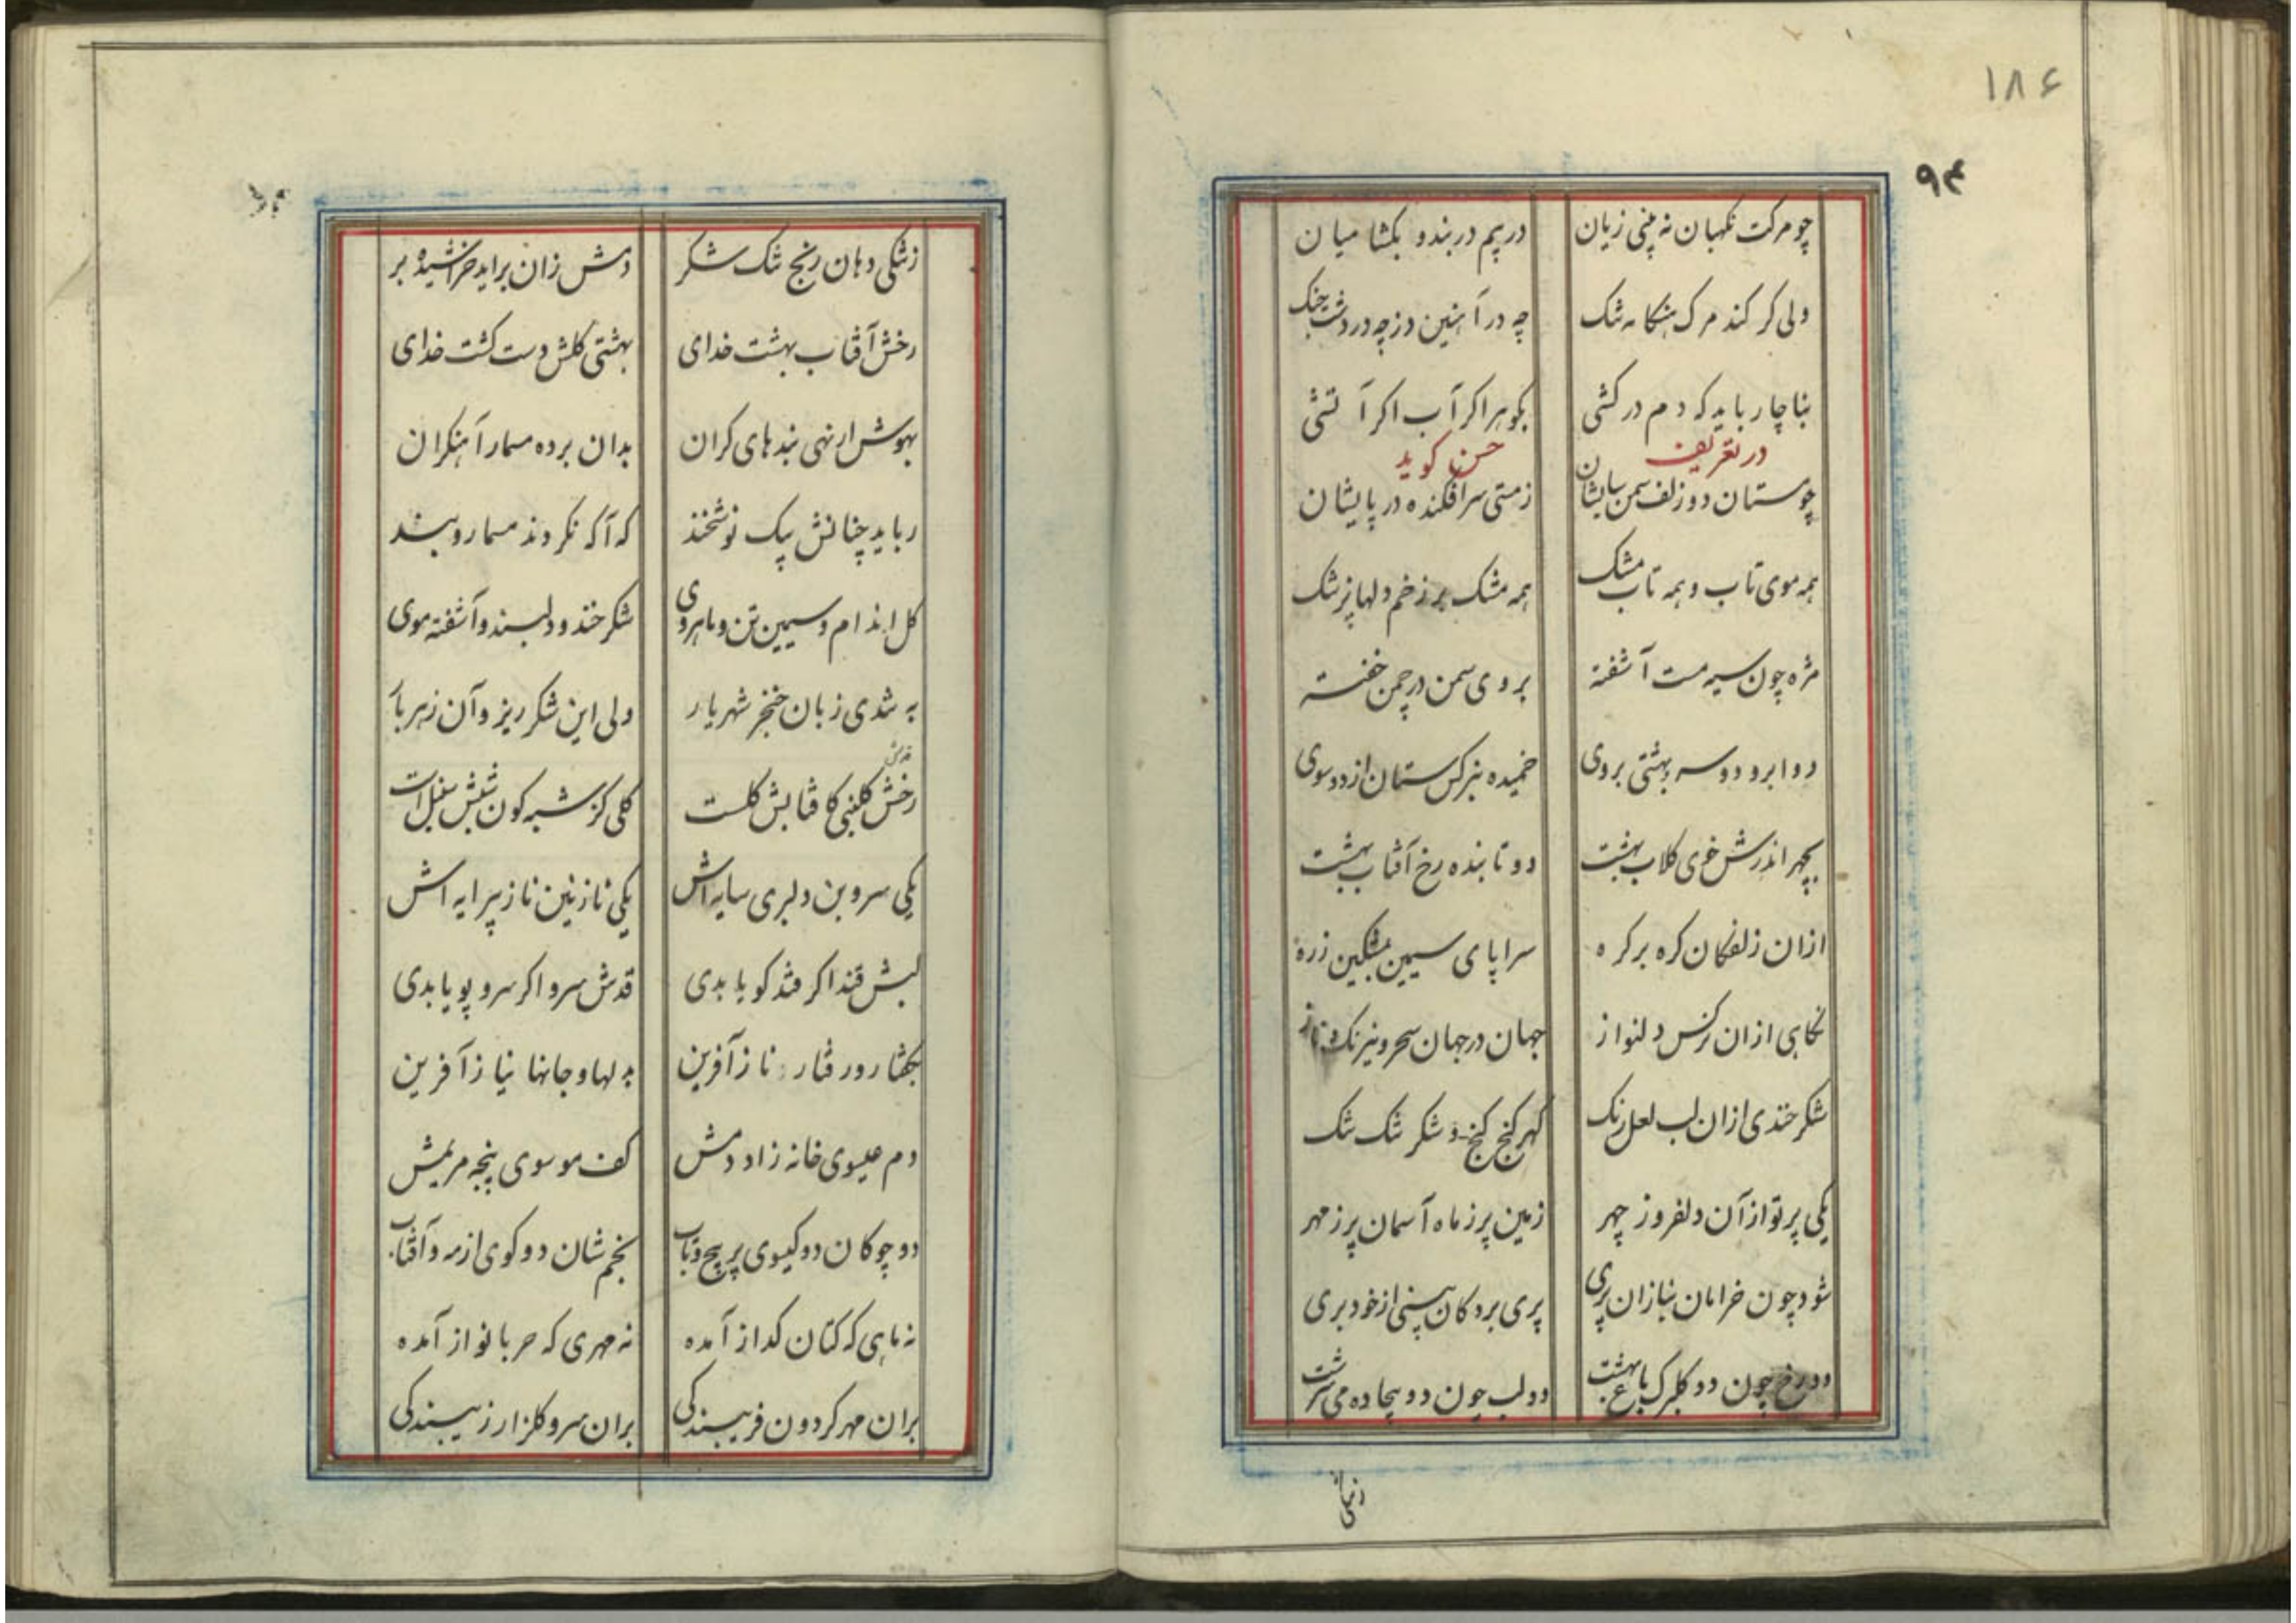 ۱۸۶
۹۴
چو مرکت نکهبان نه بینی زیان دریم دربند و بکشا میان
ولی کر کند مرک هنکامه تنک چه در آهنین دز چه در دشت جنک
بناچار باید که دم درکشی بکوهر اکر آب اکر آتشی
در تعریف حسن کوید
چو مستان دو زلف سمن سایشان زمستی سرافکنده در پایشان
همه موی تاب و همه تاب مشک همه مشک بر زخم دلها پزشک
مژه چون سیه مست آشفته بروی سمن در چمن خفته
دو ابرو دو سه بهشتی بروی خمیده بنرکس ستان از دو سوی
بچهر اندرش خوی کلاب بهشت دو تابنده رخ آفتاب بهشت
ازان زلفکان کره بر کره سراپای سیمین مشکین زره
نکاهی ازان نرکس دلنواز جهان در جهان سحر و نیرنک و ناز
شکر خندی ازان لب لعل رنک کهر کنج کنج و شکر تنک تنک
یکی پرتو از آن دلفروز چهر زمین پر ز ماه آسمان پر ز مهر
شود چون خرامان بناز ان پری پری بر دکان بینی از خود بری
دو رخ چون دو کلبرک باغ بهشت دو لب چون دو بیجاده می سرشت
زتنکی
زتنکی دهان رنج تنک شکر دمش زان براید خراشیده بر
رخش آفتاب بهشت خدای بهشتی کلش دست کشت خدای
بهوش ار نهی بندهای کران بدان برده مسمار آهنکران
رباید چنانش بیک نوشخند که آکه نکردند مسمار و بند
کل اندام و سیمین تن و ماهروی شکر خند و دلبند و آشفته موی
به تندی زبان خنجر شهریار ولی این شکر ریز و آن زهر بار
رخش کلبنی کافتابش کلست کلی کز شبه کون شبش سنبل است
یکی سرو بن دلبری سایه اش یکی نازنین ناز پیرایه اش
لبش قند اکر قند کویا بدی قدش سرو اکر سرو پویا بدی
بکفتار و رفتار ناز آفرین بدلها و جانها نیاز آفرین
دم عیسوی خانه زاد دمش کف موسوی پنجه مریمش
دو چوکان دو کیسوی پر پیچ و تاب بخم شان دو کوی از مه و آفتاب
نه ماهی که کتان کداز آمده نه مهری که حربا نواز آمده
بران مهر کردون فریبندکی بران سرو کلزار زیبندکی